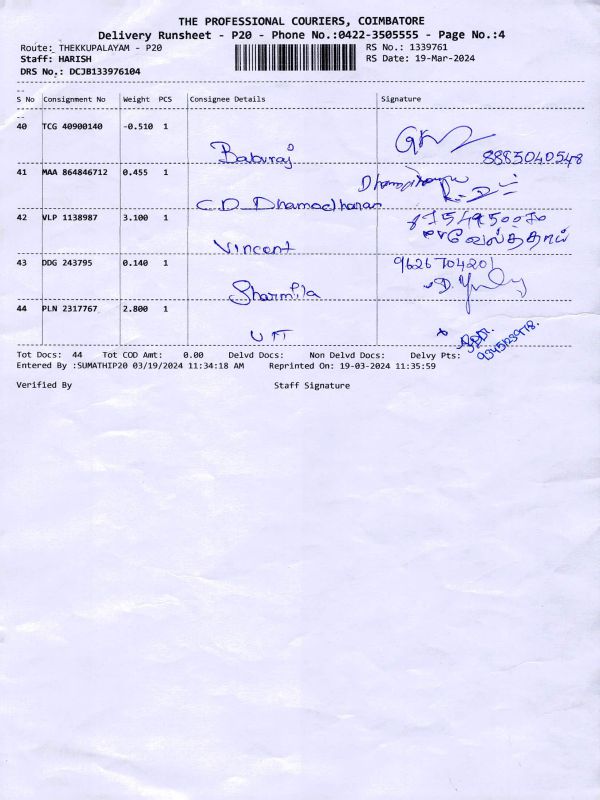 THE PROFESSIONAL COURIERS, COIMBATORE
Delivery Runsheet - P20 - Phone No.:0422-3505555 - Page No.:4
Route: THEKKUPALAYAM - P20 RS No.: 1339761
Staff: HARISH RS Date: 19-Mar-2024
DRS No.: DCJB133976104
S No Consignment No Weight PCS Consignee Details Signature
40 TCG 40900140 -0.510 1
Baburaj 8885040548
41 MAA 864846712 0.455 1
C D Dhamodharan
42 VLP 1138987 3.100 1
Vincent
43 DDG 243795 0.140 1 9626704201
Sharmila
44 PLN 2317767 2.800 1
Tot Docs: 44 Tot COD Amt: 0.00 Delvd Docs: Non Delvd Docs: Delvy Pts:
Entered By :SUMATHIP20 03/19/2024 11:34:18 AM Reprinted On: 19-03-2024 11:35:59
Verified By Staff Signature